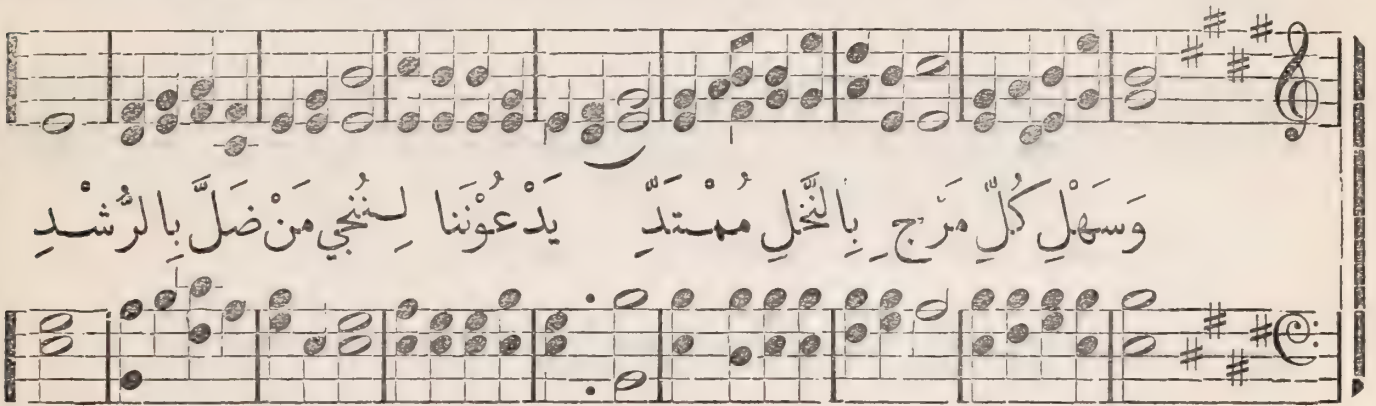 وَسَهْلِ كُلِّ مَرْجٍ بِالنَّخْلِ مُمْتَدِّ يَدْعُوْنَنا لِنُنْجِي مَنْ ضَلَّ بِالرُّشْدِ